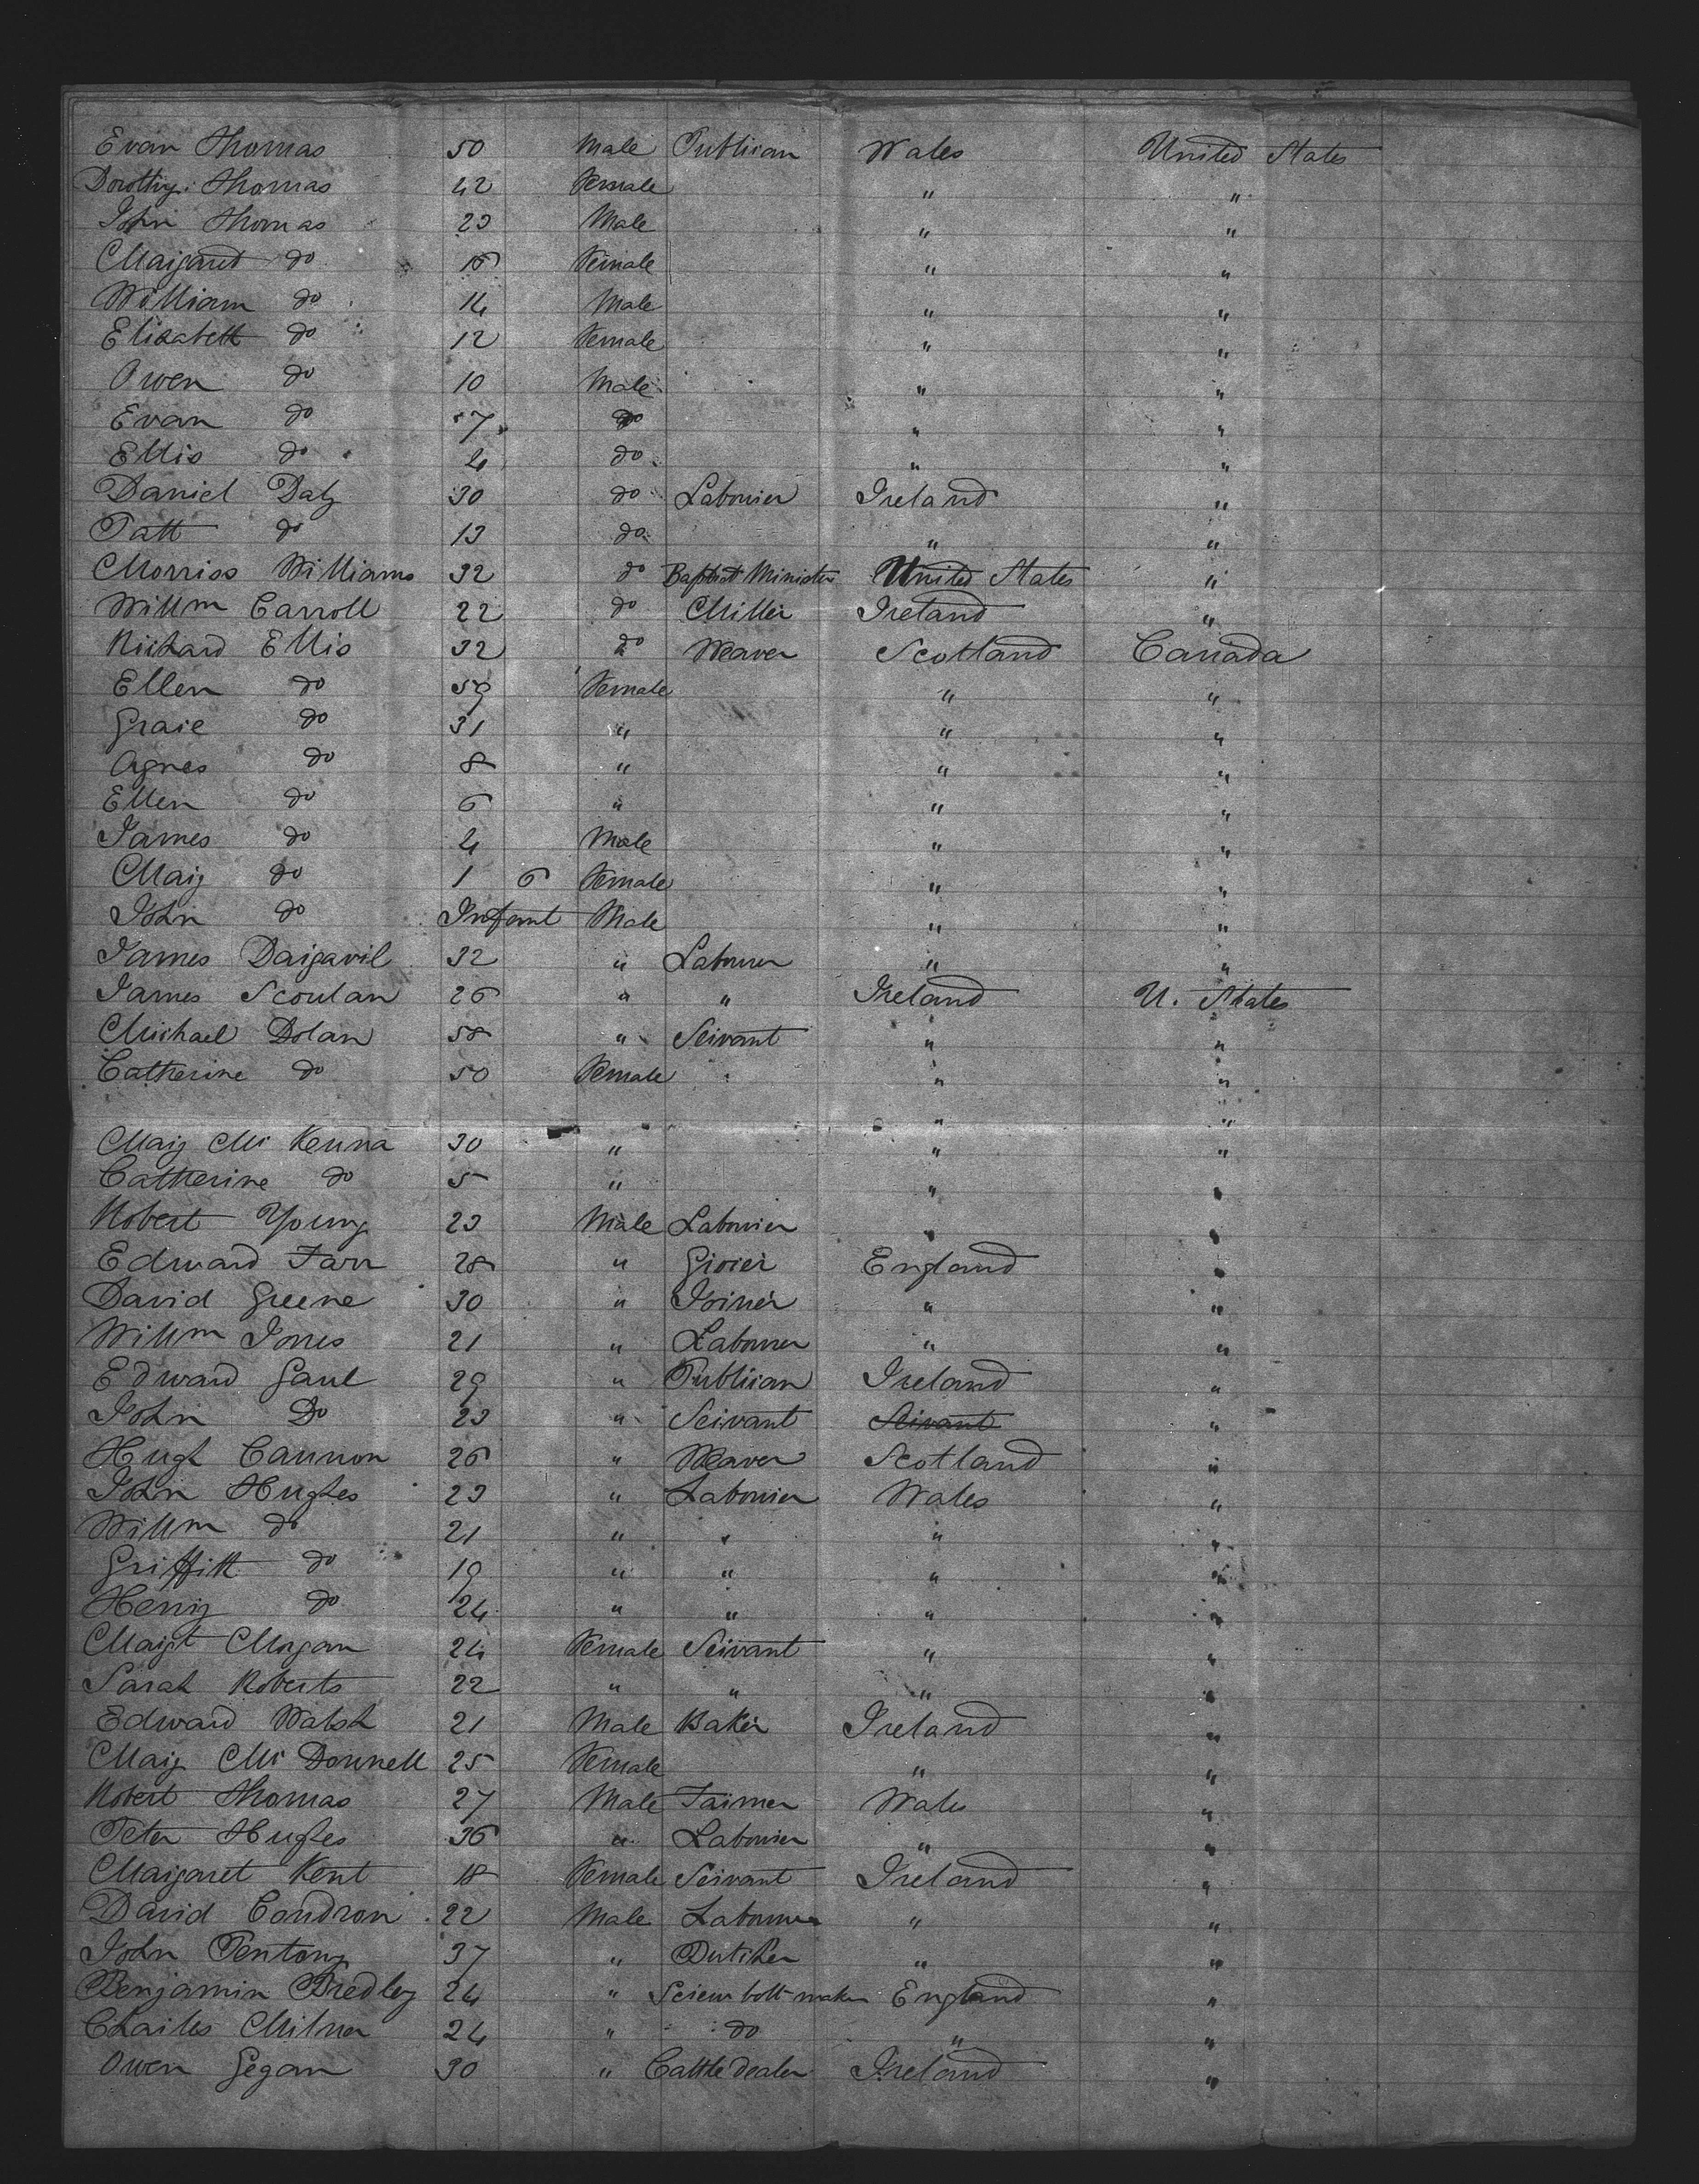 Evan Thomas 50 Male Publican Wales United States
Dorothy Thomas 42 Female " "
John Thomas 23 Male " "
Margaret do 16 Female " "
William do 14 Male " "
Elizabeth do 12 Female " "
Owen do 10 Male " "
Evan do 7 do " "
Ellis do 4 do " "
Daniel Daly 30 do Labourer Ireland "
Patt do 13 do " "
Morriss Williams 32 do Baptist Minister United States "
Willm Carroll 22 do Miller Ireland "
Richard Ellis 32 do Weaver Scotland Canada
Ellen do 59 Female " "
Grace do 31 " " "
Agnes do 8 " " "
Ellen do 6 " " "
James do 4 Male " "
Mary do 1 6 Female " "
John do Infant Male " "
James 32 " Labourer " "
James Scoulan 26 " " Ireland U. States
Michael Dolan 58 " Servant " "
Catherine do 50 Female " "
" "
Mary Mc Kenna 30 " " "
Catherine do 5 " " "
Robert Young 23 Male Labourer " "
Edward Farr 28 " Grocer England "
David Greene 30 " Joiner " "
Willm Jones 21 " Labourer " "
Edward Gaul 29 " Publican Ireland "
John Do 23 " Servant Servant "
Hugh Cannon 26 " Weaver Scotland "
John Hughes 23 " Labourer Wales "
Willm do 21 " " " "
Griffith do 19 " " " "
Henry do 24 " " " "
Margt Morgan 24 Female Servant " "
Sarah Roberts 22 " " " "
Edward Walsh 21 Male Baker Ireland "
Mary Mc Donnell 25 Female " "
Robert Thomas 27 Male Farmer Wales "
Peter Hughes 36 " Labourer " "
Margaret Kent 18 Female Servant Ireland "
David Condron 22 Male Labourer " "
John 37 " Butcher " "
Benjamin Bredley 24 " Screw bolt-maker England "
Charles Milner 24 " do " "
Owen Gegan 30 " Cattle dealer Ireland "